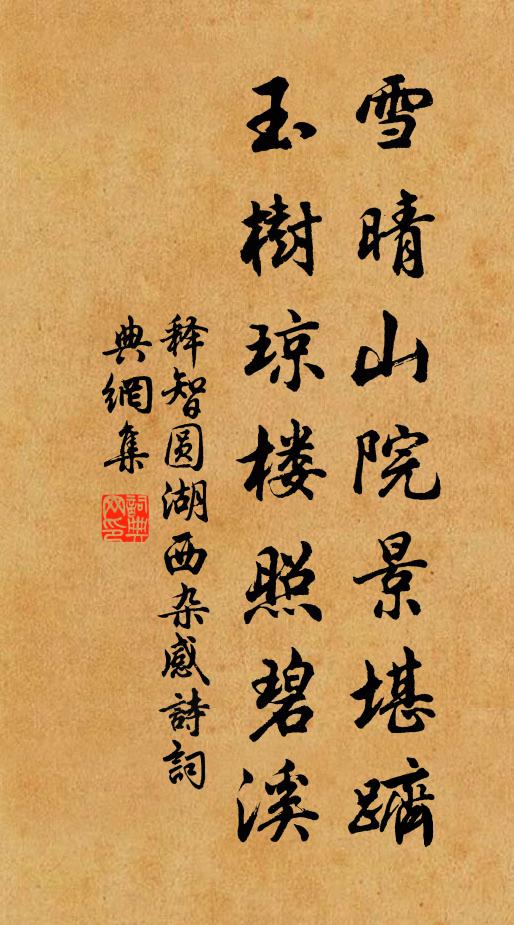 雪晴山院景堪躋
玉樹琼楼照碧溪
释智圆湖西杂感詩詞
典網集
詞典網印